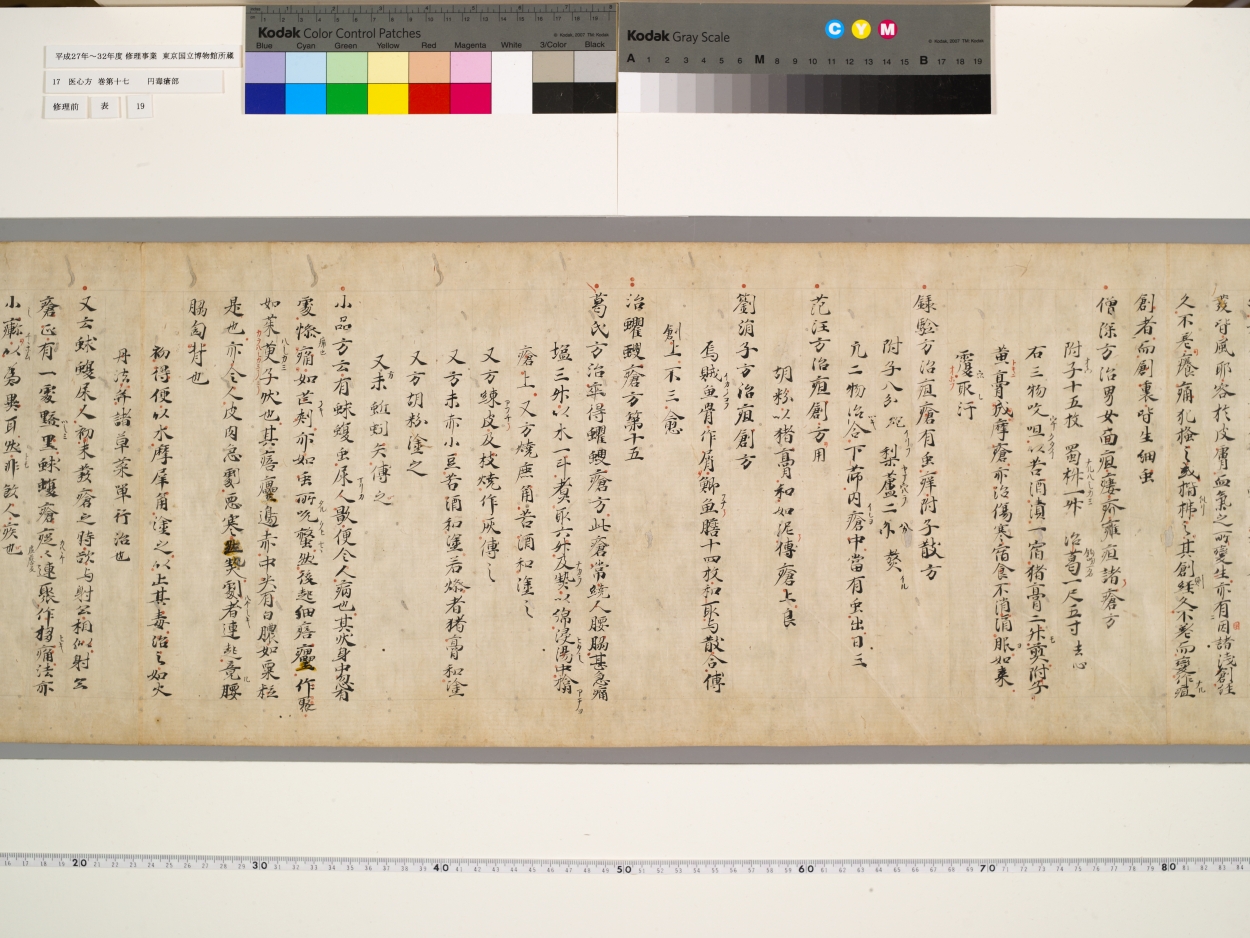 平成27年～32年度 修理事業 東京国立博物館所蔵
17 医心方 巻第十七 円毒瘡部
修理前 表 19
Kodak Color Control Patches
Blue Cyan Green Yellow Red Magenta White 3/Color Black
© Kodak, 2007 TM: Kodak
Kodak Gray Scale
C Y M
© Kodak, 2007 TM: Kodak
A 1 2 3 4 5 6 M 8 9 10 11 12 13 14 15 B 17 18 19
發皆風耶客於皮膚血氣之所變生亦有因諸淺創経
久不差癢痛抓搔之或指排之其創経久不差而變作疽
創者而創裏皆生細虫
僧深方治男女面疽瘻疥癰疽諸瘡方
附子十五枚 蜀椒一升 冶葛一尺五寸 去心
右三物㕮咀以苦酒漬一宿猪膏二升煎附子
黄膏成摩瘡亦治傷寒宿食不消消服如棗
覆取汗
録驗方治疽瘡有虫痒附子散方
附子八分 炮 梨蘆二分 熬
凡二物治合下篩内瘡中當有虫出日三
范汪方治疽創方用
胡粉以猪膏和如泥傅瘡上良
劉涓子方治疽創方
烏賊魚骨作屑鯽魚膽十四枚和取与散合傅
創上不三愈
治蠼螋瘡方第十五
葛氏方治卒得蠼螋瘡方此瘡常繞人腰脇甚急痛
塩三升以水一斗煮取六升及熱以綿浸湯中搨
瘡上 又方燒鹿角苦酒和塗之
又方練皮及枝燒作灰傅之
又方末赤小豆苦酒和塗若燥者猪膏和塗
又方胡粉塗之
又末蚯蚓矢傅之
小品方云有蛷螋虫尿人影便令人病也其状身中忽有
處慘痛如芒刺亦如虫所吮螫然後起細㾦㿔作聚
如茱萸子状也其㾦㿔邊赤中央有白膿如粟粒
是也亦令人皮肉急劇悪寒壮熱劇者連起竟腰
脇匈背也
初得便以水摩犀角塗之以止其毒治之如火
丹法并諸草菜單行治也
又云蛷螋尿人初未發瘡之時欲与射公相似射公
瘡正有一處黶黒蛷螋瘡磊之連聚作搨痛法亦
小癥以為異耳然非飲人疾也
20 30 40 50 60 70 80